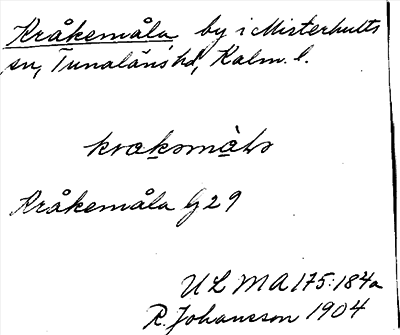 Kråkemåla by i Misterhults
sn, Tunaläns hd, Kalm. l.
Kråkemåla G 29
ULMA 175:184a
R. Johansson 1904